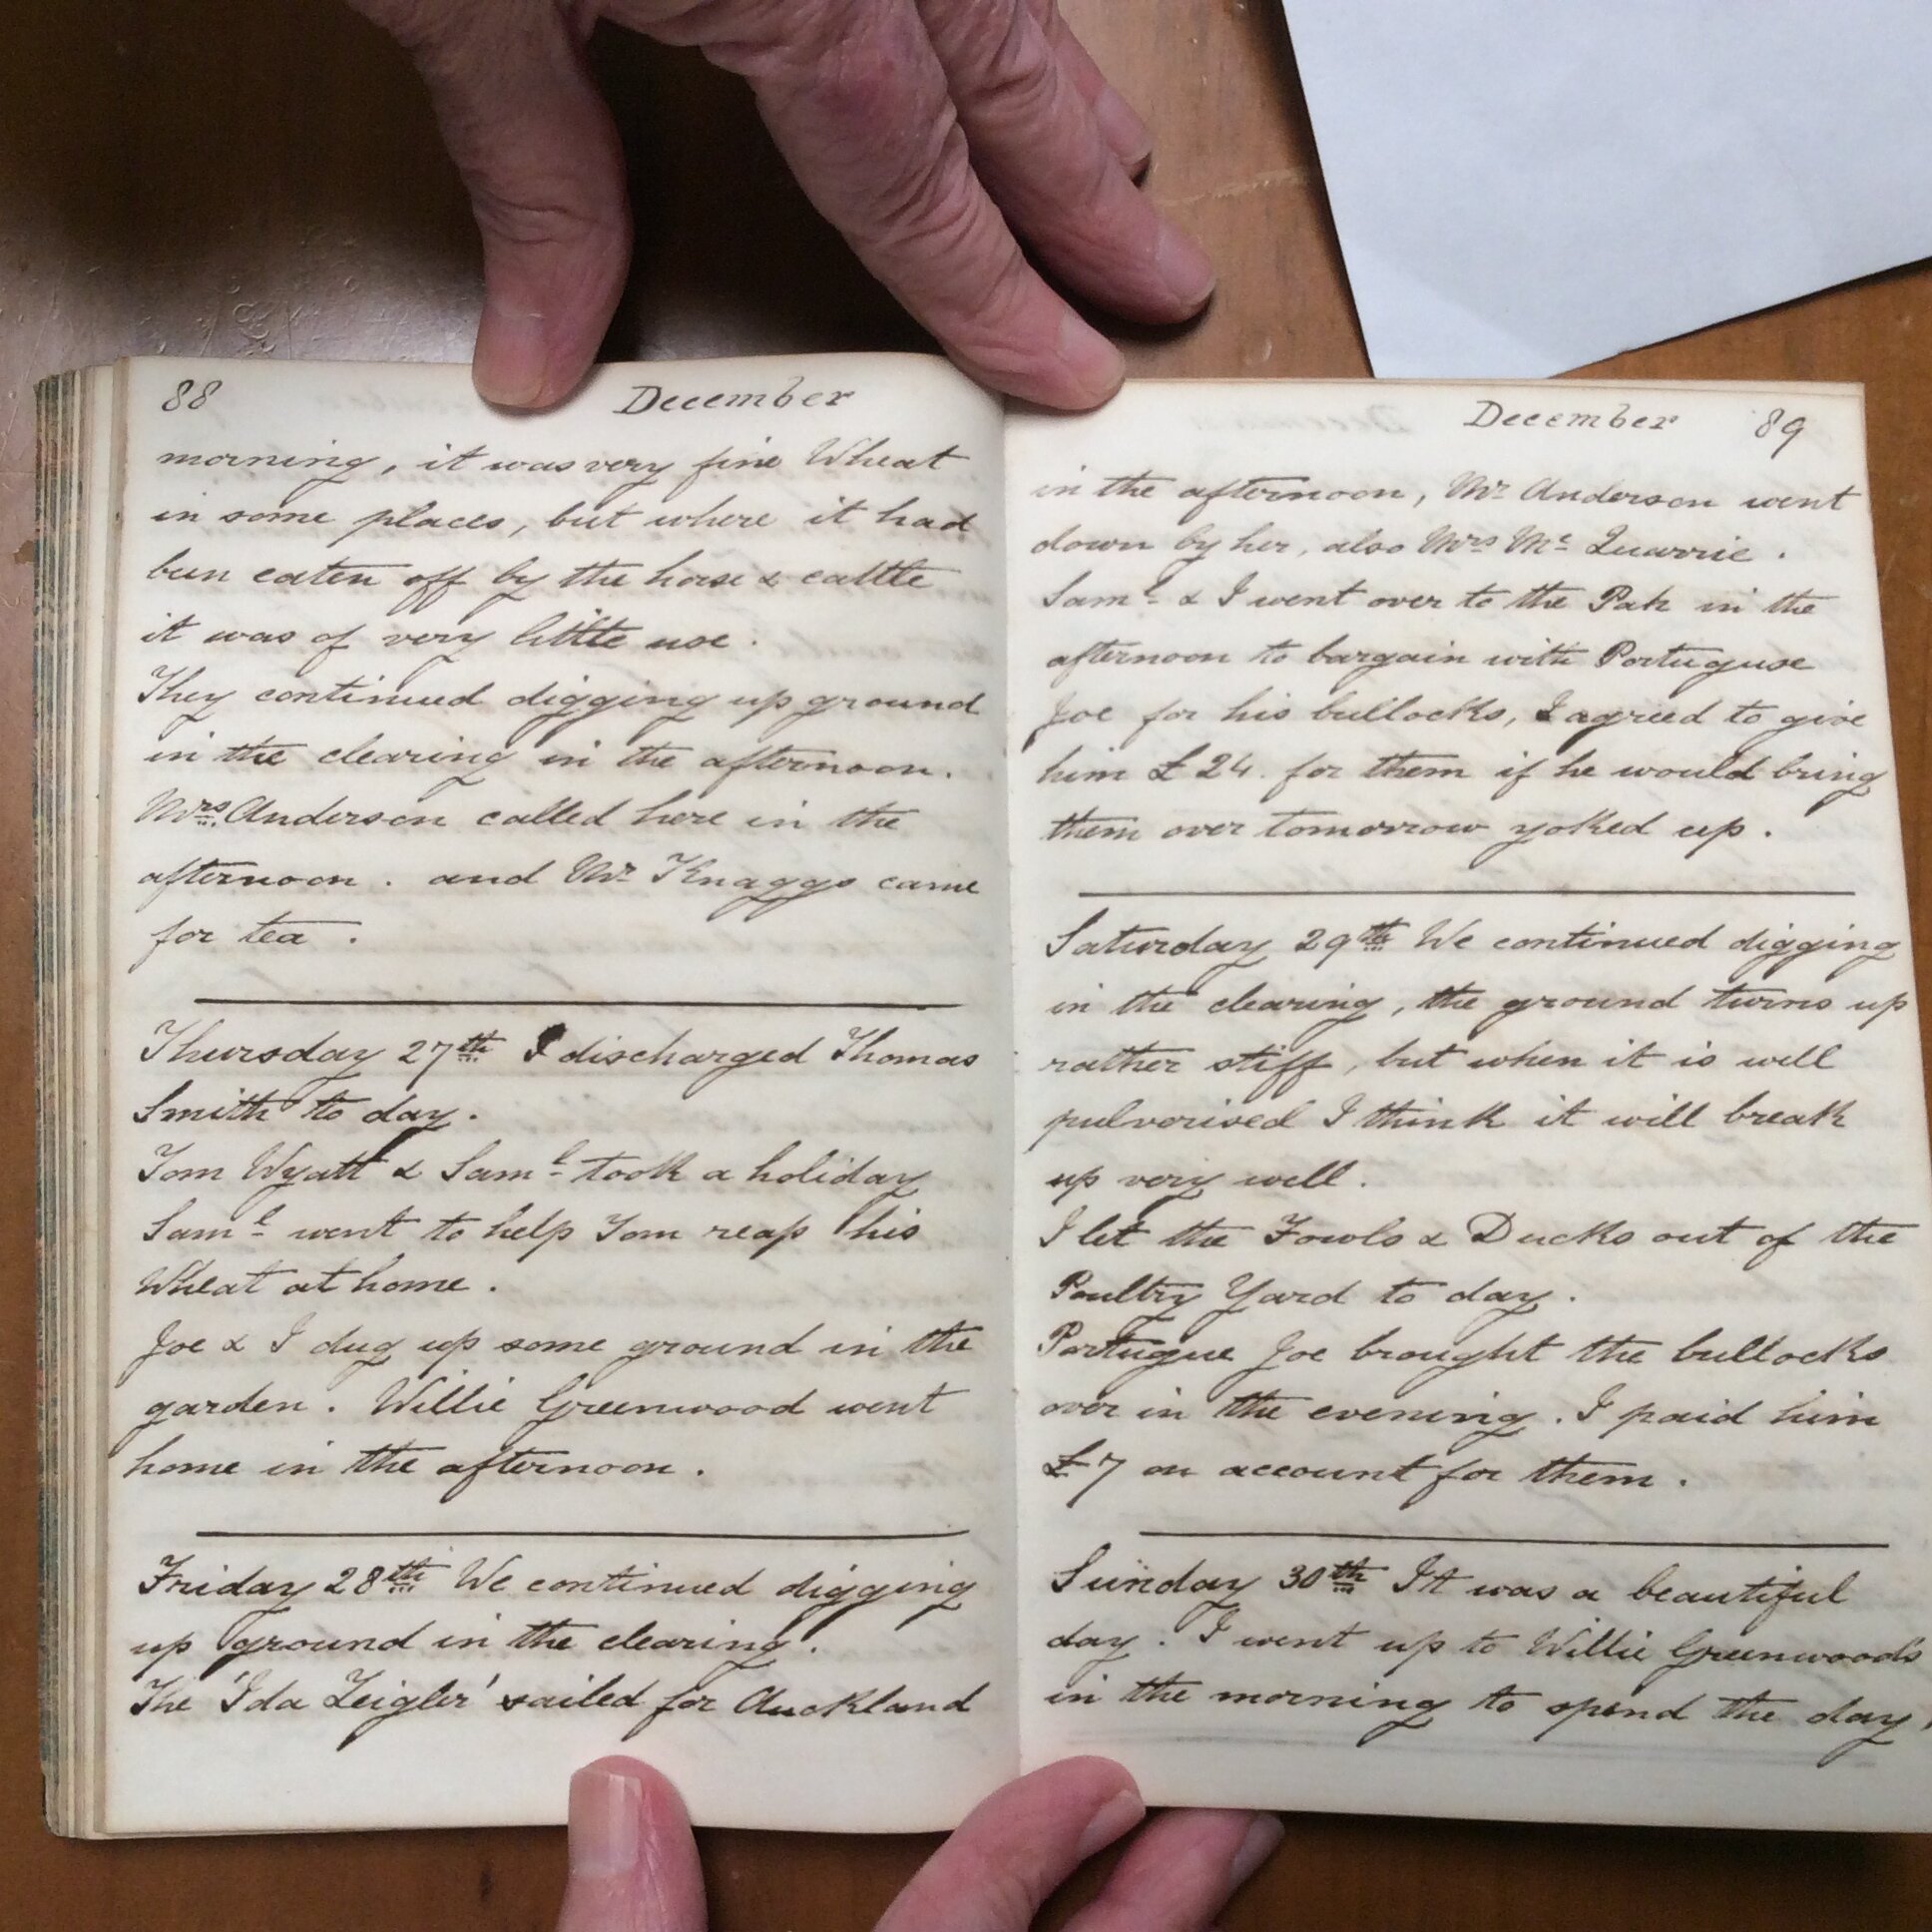 88 December
morning, it was very fine Wheat
in some places, but where it had
been eaten off by the horse & cattle
it was of very little use.
They continued digging up ground
in the clearing in the afternoon.
Mrs. Anderson called here in the
afternoon. and Mr Knaggs came
for tea.
Thursday 27th I discharged Thomas
Smith to day.
Tom Wyatt & Saml took a holiday
Saml went to help Tom reap his
Wheat at home.
Joe & I dug up some ground in the
garden. Willie Greenwood went
home in the afternoon.
Friday 28th We continued digging
up ground in the clearing.
The 'Ida Zeigler' sailed for Auckland
December 89
in the afternoon, Mr Anderson went
down by her, also Mrs Mc Quarrie.
Saml & I went over to the Pah in the
afternoon to bargain with Portuguese
Joe for his bullocks, I agreed to give
him £24. for them if he would bring
them over tomorrow yoked up.
Saturday 29th We continued digging
in the clearing, the ground turns up
rather stiff, but when it is well
pulverised I think it will break
up very well.
I let the Fowls & Ducks out of the
Poultry Yard to day.
Portugue Joe brought the bullocks
over in the evening. I paid him
£7 on account for them.
Sunday 30th It was a beautiful
day. I went up to Willie Greenwoods
in the morning to spend the day,